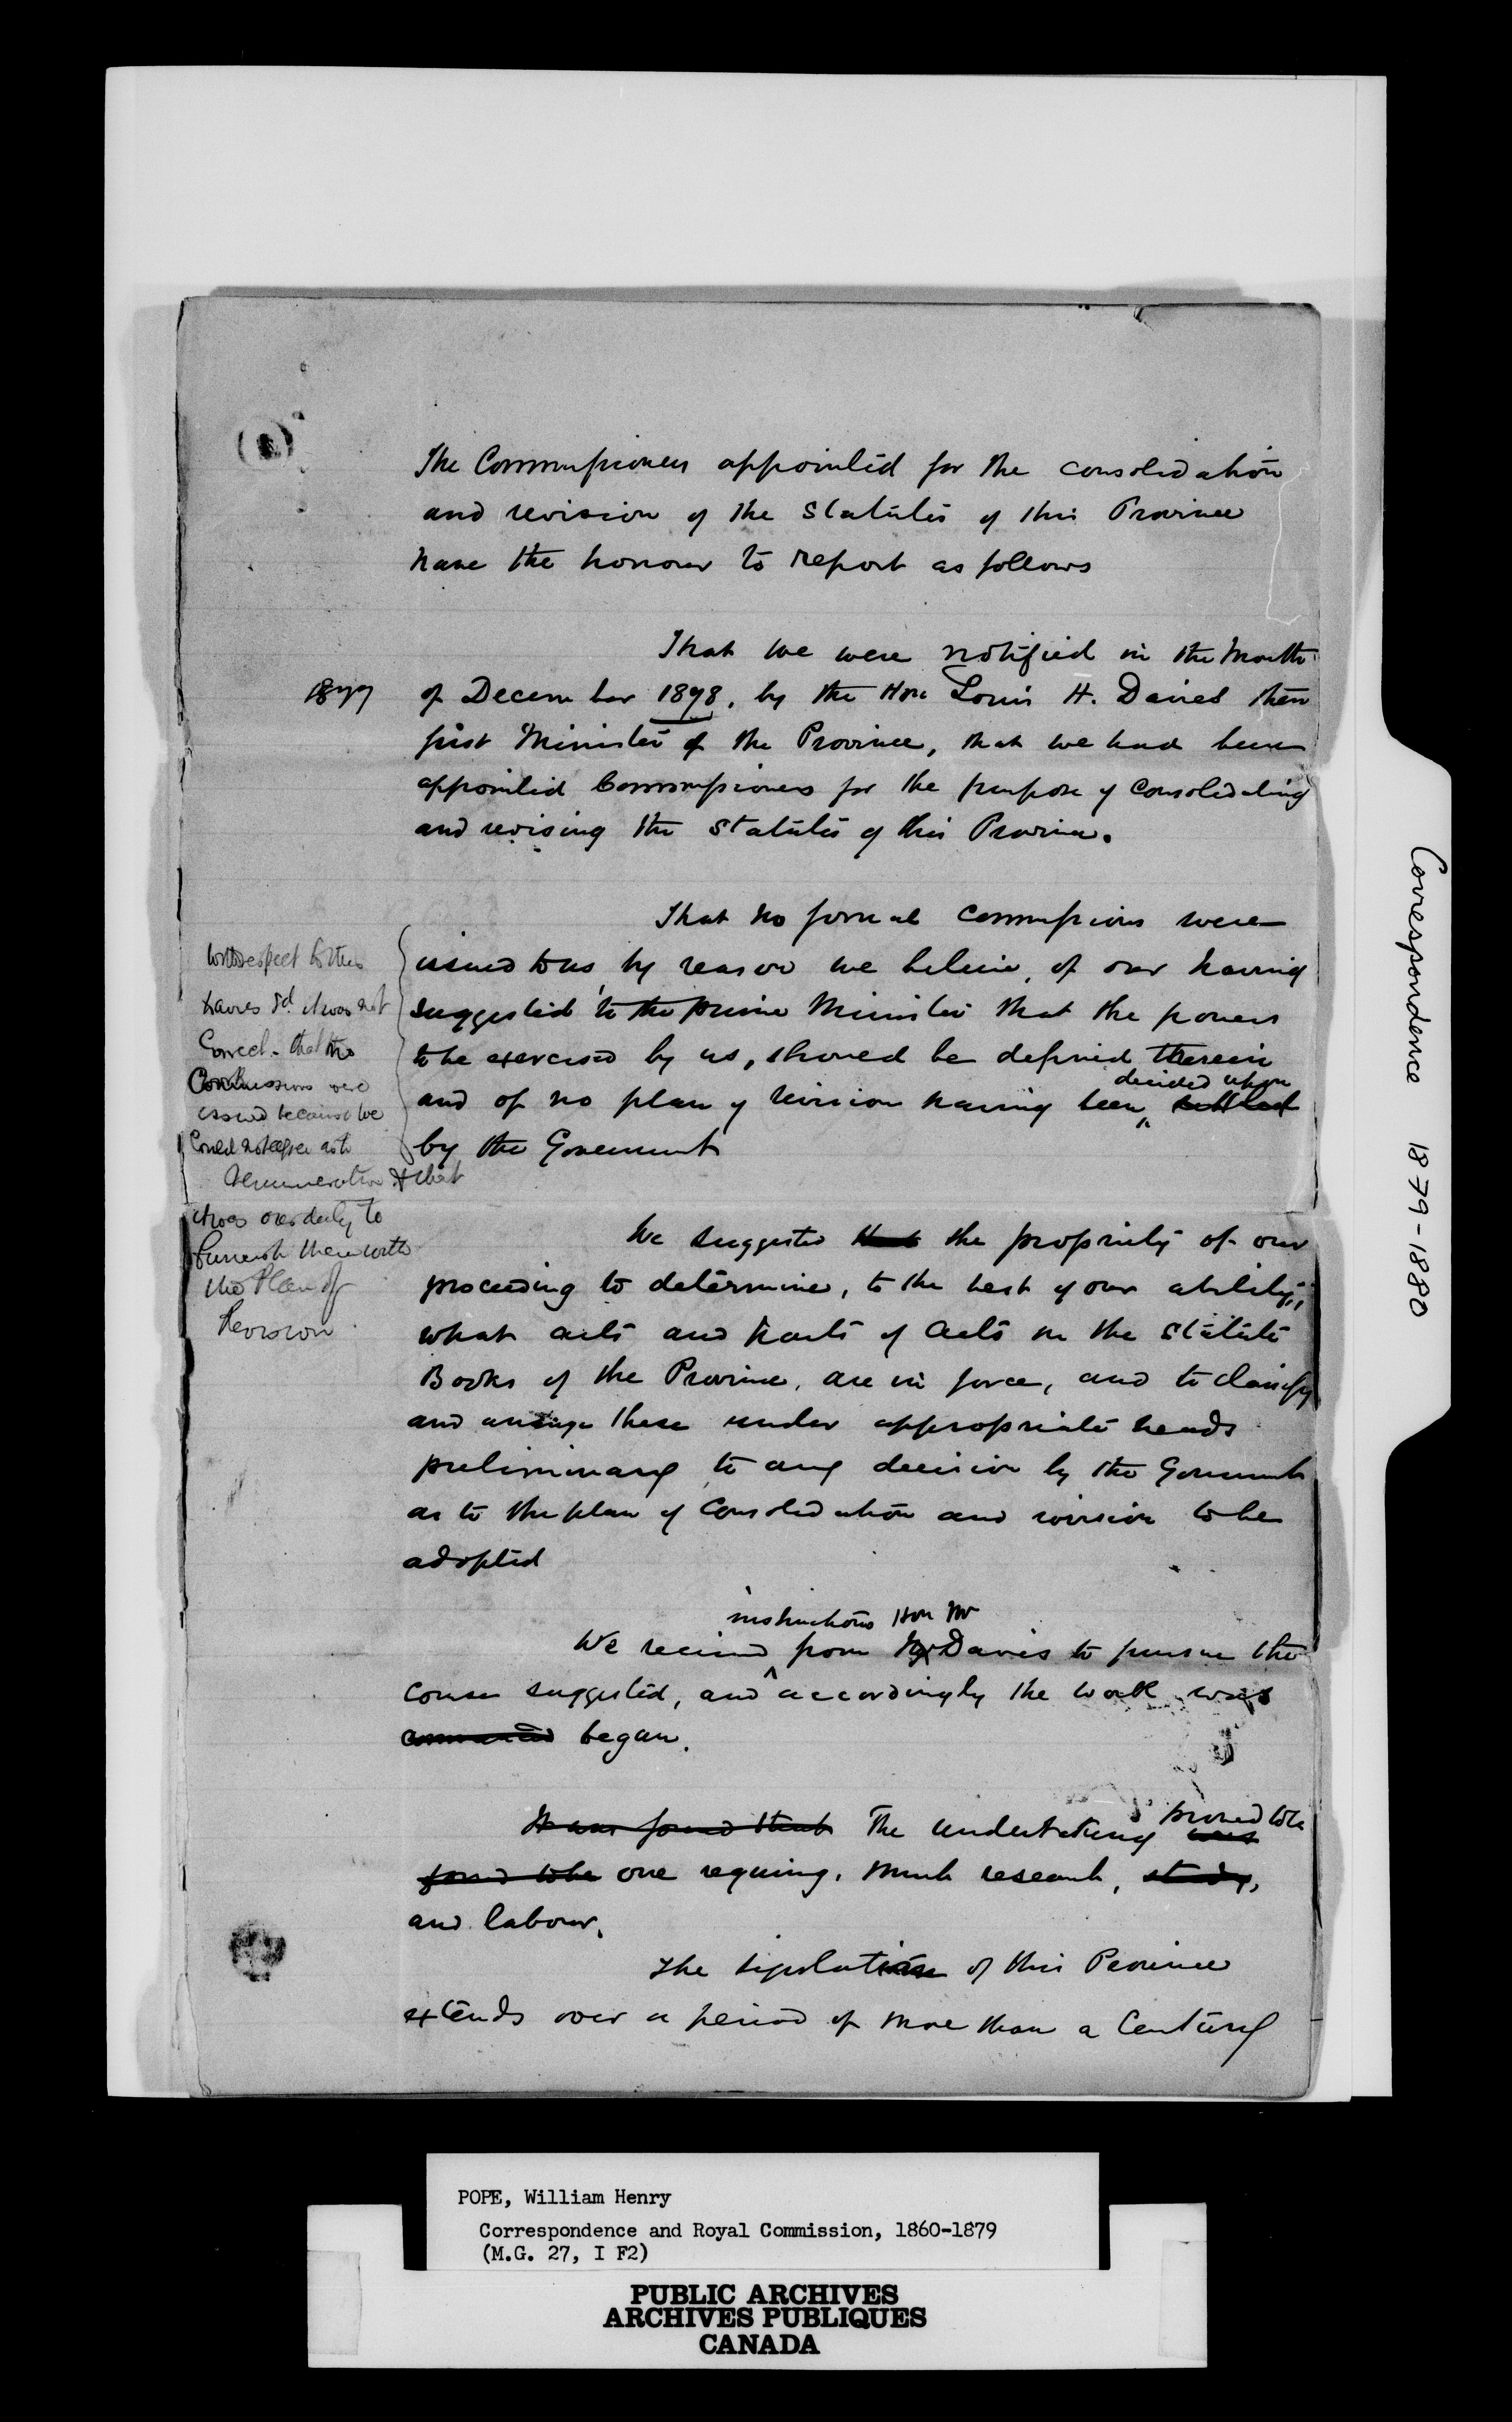 The Commissioners appointed for the consolidation
and revision of the Statutes of this Province
have the honour to report as follows
That we were notified in the Month
1877
of December 1878, by the Hon Louis H. Davies then
first Minister of the Province, that we had been
appointed Commissioners for the purpose of Consolidating
and revising the Statutes of this Province.
That no formal Commissions were
issued to us by reason we believe, of our having
suggested to the prime Minister that the powers
to be exercised by us, should be defined therein
decided upon
and of no plan of revision having been settled
by the Goverment
with respect to this
Davies sd. it was not
Correct - that the
Commissions were
issued because we
Could not agree as to
remuneration & that
it was our duty to
furnish them with
the Plan of
Revision
We suggested that the propriety of our
proceeding to determine, to the best of our ability,
what acts and parts of Acts in the Statute
Books of the Province, are in force, and to classify
and arrange these under appropriate heads
preliminary to any decision by the Goverment
as to the plan of Consolidation and revision to be
adopted
instructions Hon Mr
We received from Mr Davies to pursue the
course suggested, and accordingly the work was
commenced began.
proved to be
It was found that The undertaking was
found to be one requiring, much research, study,
and labour.
The legislation of this Province
extends over a period of more than a Century
Correspondence 1879-1880
POPE, William Henry
Correspondence and Royal Commission, 1860-1879
(M.G. 27, I F2)
PUBLIC ARCHIVES
ARCHIVES PUBLIQUES
CANADA